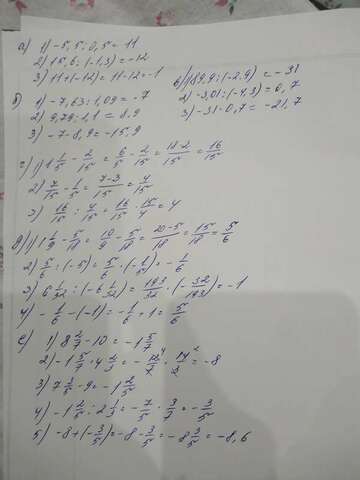 а) 1) -5,5 : 0,5 = 11
2) 15,6 : (-1,3) = -12
3) 11 + (-12) = 11 - 12 = -1
б) 1) -7,63 : 1,09 = -7
2) 9,79 : 1,1 = 8,9
3) -7 - 8,9 = -15,9
в) 1) 89,9 : (-2,9) = -31
2) -3,01 : (-4,3) = 0,7
3) -31 - 0,7 = -21,7
г) 1) 1 1/5 - 2/15 = 6/5 - 2/15 = 18-2/15 = 16/15
2) 7/15 - 1/5 = 7-3/15 = 4/15
3) 16/15 : 4/15 = 16/15 · 15/4 = 4
д) 1) 1 1/9 - 5/18 = 10/9 - 5/18 = 20-5/18 = 15/18 = 5/6
2) 5/6 : (-5) = 5/6 · (-1/5) = -1/6
3) 6 1/32 : (-6 1/32) = 193/32 · (-32/193) = -1
4) -1/6 - (-1) = -1/6 + 1 = 5/6
е) 1) 8 2/7 - 10 = -1 5/7
2) -1 5/7 · 4 2/3 = -12/7 · 14/3 = -8
3) 7 3/5 - 9 = -1 2/5
4) -1 2/5 : 2 1/3 = -7/5 · 3/7 = -3/5
5) -8 + (-3/5) = -8 - 3/5 = -8 3/5 = -8,6